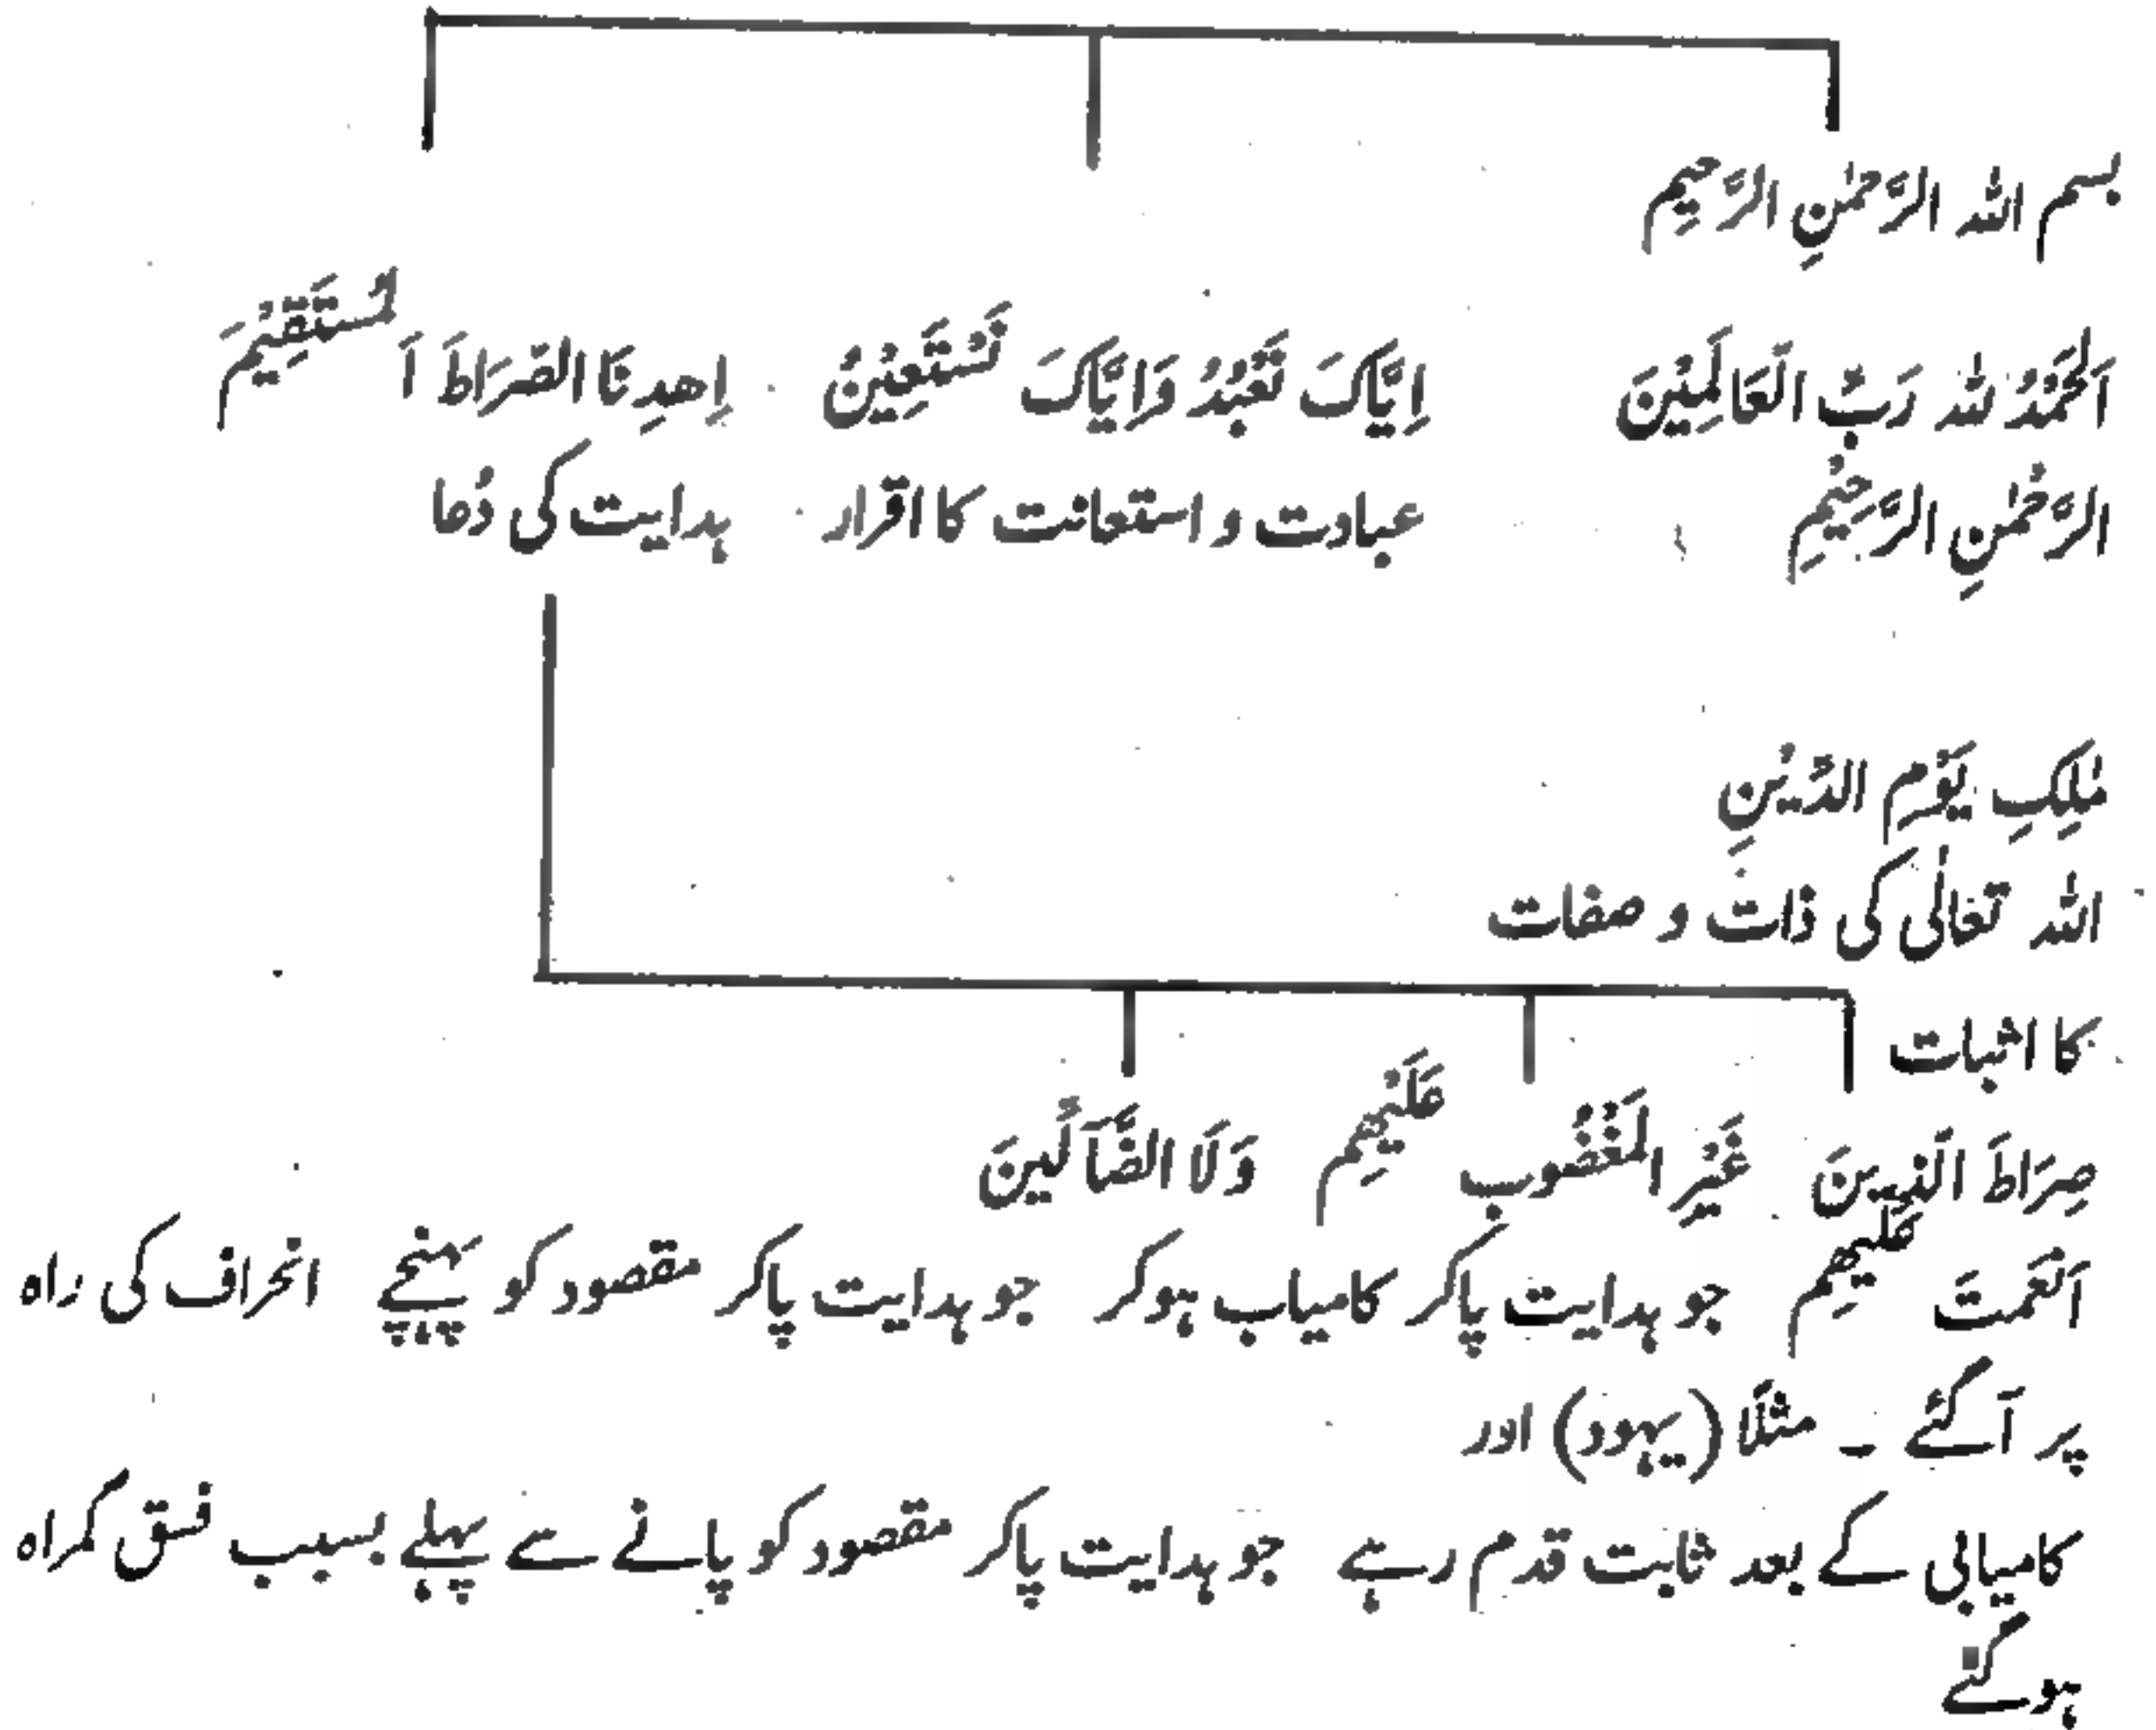 بسم الله الرَّحمٰنِ الرَّحِیم
اَلحَمْدُ لله رَبِّ الْعَالَمِیْنَ اِیَّاکَ نَعْبُدُ وَاِیَّاکَ نَسْتَعِیْنُ اِھدِ نَا الصِّرَاطَ اَ لمُستَقِیْمَ
الرَّحْمٰنِ الرَّحِیْمِ عبادت و استعانت کا اقرار ہدایت کی دُعا
مٰلِکِ یَوْمِ الدِّیْنِ
الله تعالٰی کی ذات و صفات
کا اثبات
صِرَاطَ الَّذِینَ غَیْرِ الْمَغْضُوبِ عَلَیْہِم وَلَا الضَّآلِّینَ
اَنْعَمْتَ عَلَیْہِم جو ہدایت پاکر کامیاب ہوکر جو ہدایت پاکر مقصود کو پہنچے انحراف کی راہ
پر آگئے ۔ مثلًا (یہود) اور
کامیابی کے بعد ثابت قدم رہے جو ہدایت پاکر مقصود کو پانے سے پہلے بسبب فسق گمراہ
ہوگئے